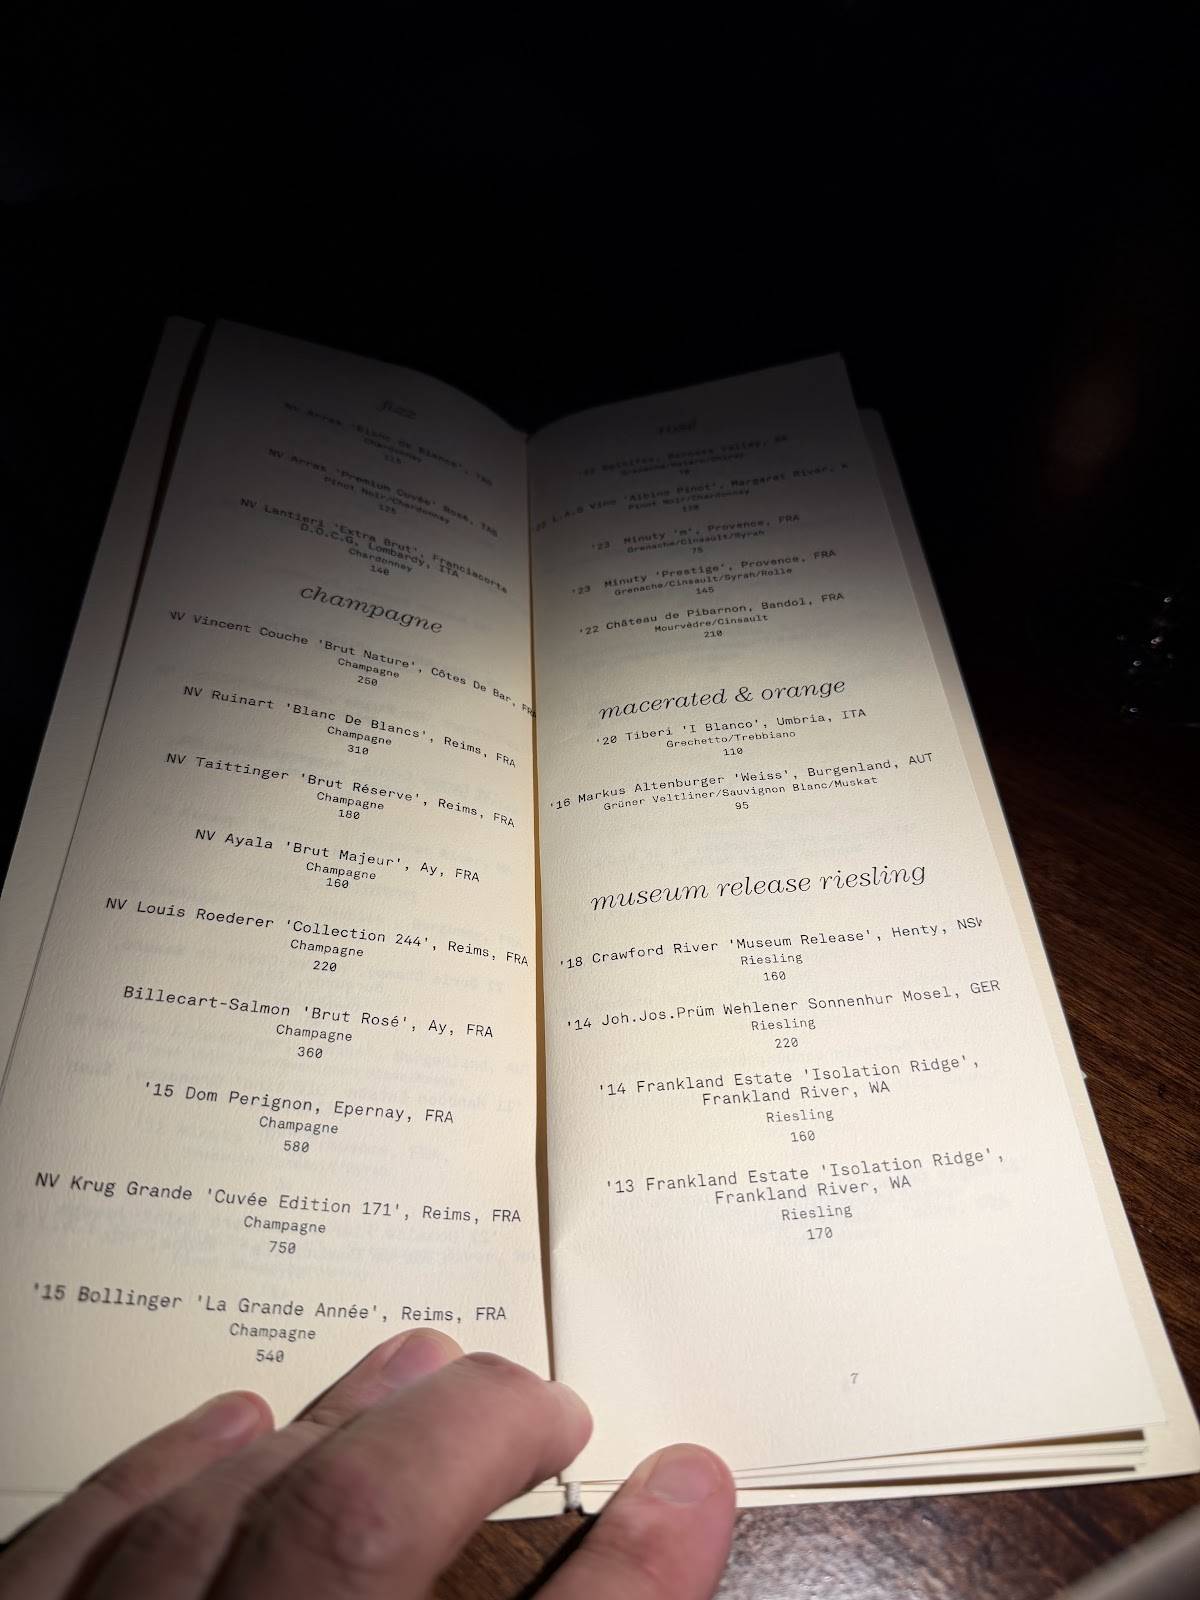 fizz
NV Arras 'Blanc de Blancs', TAS
Chardonnay
115
NV Arras 'Premium Cuvée' Rosé, TAS
Pinot Noir/Chardonnay
125
NV Lantieri 'Extra Brut', Franciacorte
D.O.C.G. Lombardy, ITA
Chardonnay
140
champagne
NV Vincent Couche 'Brut Nature', Côtes De Bar, FRA
Champagne
250
NV Ruinart 'Blanc De Blancs', Reims, FRA
Champagne
310
NV Taittinger 'Brut Réserve', Reims, FRA
Champagne
180
NV Ayala 'Brut Majeur', Ay, FRA
Champagne
160
NV Louis Roederer 'Collection 244', Reims, FRA
Champagne
220
Billecart-Salmon 'Brut Rosé', Ay, FRA
Champagne
360
'15 Dom Perignon, Epernay, FRA
Champagne
580
NV Krug Grande 'Cuvée Edition 171', Reims, FRA
Champagne
750
'15 Bollinger 'La Grande Année', Reims, FRA
Champagne
540
rosé
Barossa Valley, SA
Grenache/Mataro/Shiraz
L.A.S Vino 'Albino Pinot', Margaret River,
Pinot Noir/Chardonnay
'23 Minuty 'm', Provence, FRA
Grenache/Cinsault/Syrah
75
'23 Minuty 'Prestige', Provence, FRA
Grenache/Cinsault/Syrah/Rolle
145
'22 Château de Pibarnon, Bandol, FRA
Mourvèdre/Cinsault
210
macerated & orange
'20 Tiberi 'I Blanco', Umbria, ITA
Grechetto/Trebbiano
110
'16 Markus Altenburger 'Weiss', Burgenland, AUT
Grüner Veltliner/Sauvignon Blanc/Muskat
95
museum release riesling
'18 Crawford River 'Museum Release', Henty, NSW
Riesling
160
'14 Joh.Jos.Prüm Wehlener Sonnenhur Mosel, GER
Riesling
220
'14 Frankland Estate 'Isolation Ridge',
Frankland River, WA
Riesling
160
'13 Frankland Estate 'Isolation Ridge',
Frankland River, WA
Riesling
170
7